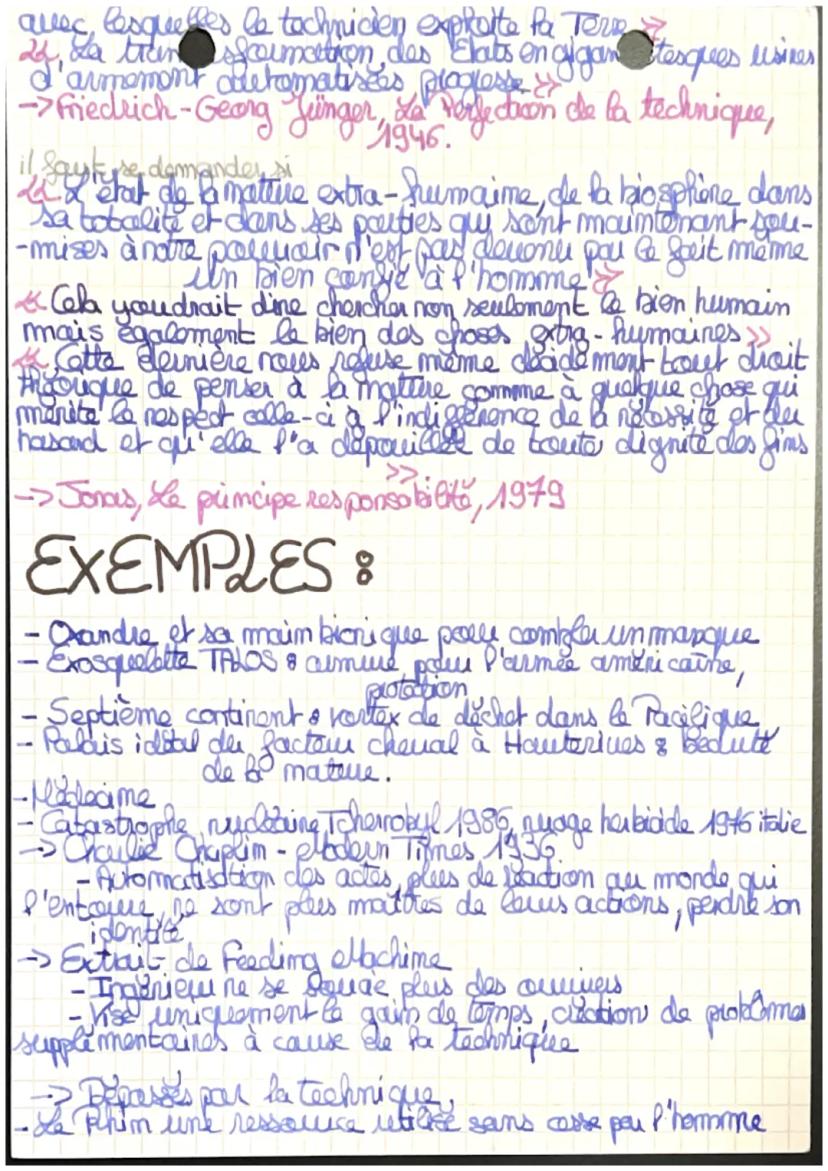 avec lesquelles le technicien exploite la Terre »
« La transformation des Etats en gigantesques usines
d'armement automatisées progresse »
-> Friedrich-Georg Jünger, La Perfection de la technique,
1946.
il faut se demander si
« L'état de la nature extra-humaine, de la biosphère dans
sa totalité et dans ses parties qui sont maintenant sou-
-mises à notre pouvoir n'est pas devenu par le fait même
un bien confié à l'homme »
« Cela voudrait dire chercher non seulement le bien humain
mais également le bien des choses extra-humaines »
« Cette dernière nous refuse même décidément tout droit
théorique de penser à la nature comme à quelque chose qui
mérite le respect celle-ci à l'indifférence de la nécessité et du
hasard et qu'elle l'a dépouillée de toute dignité des fins
»
-> Jonas, Le principe responsabilité, 1979
EXEMPLES :
- Oxandre et sa main bionique pour combler un manque
- Exosquelette TALOS : armure pour l'armée américaine,
protection
- Septième continent : vortex de déchet dans le Pacifique
- Palais idéal du facteur cheval à Hauterives : beauté
de la nature.
- Médecine
- Catastrophe nucléaire Tchernobyl 1986, nuage herbicide 1976 italie
-> Charlie Chaplin - Modern Times 1936
- Automatisation des actes, plus de réaction au monde qui
l'entoure, ne sont plus maîtres de leurs actions, perdre son
identité
-> Extrait de Feeding Machine
- Ingénieur ne se soucie plus des ouvriers
- Vise uniquement le gain de temps, création de problèmes
supplémentaires à cause de la technique
-> Dépassés par la technique,
- Le Rhin une ressource utilisé sans cesse par l'homme